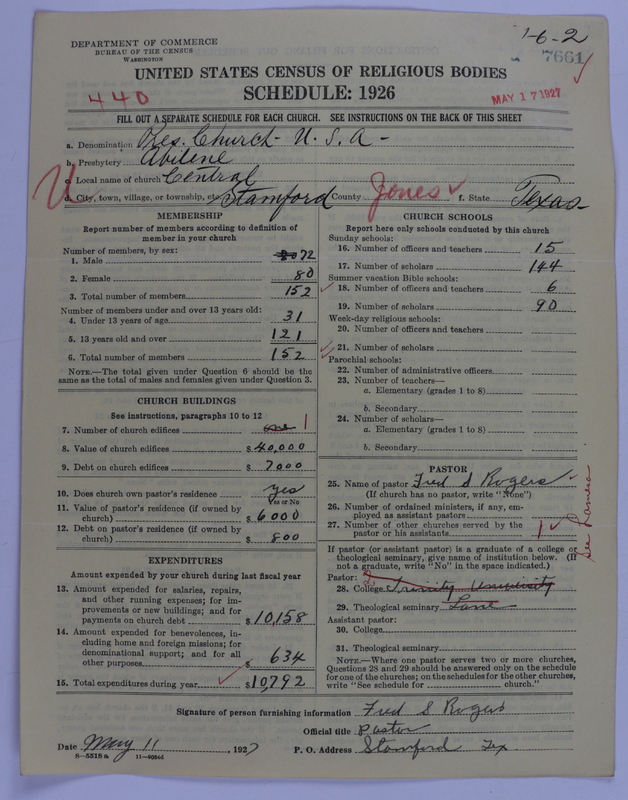 1-6-2
DEPARTMENT OF COMMERCE
BUREAU OF THE CENSUS
WASHINGTON
7661
UNITED STATES CENSUS OF RELIGIOUS BODIES
SCHEDULE: 1926
440
MAY 17 1927
FILL OUT A SEPARATE SCHEDULE FOR EACH CHURCH. SEE INSTRUCTIONS ON THE BACK OF THIS SHEET
a. Denomination Pres. Church - U. S. A -
b. Presbytery Abilene
c. Local name of church Central
d. City, town, village, or township, or Stamford County Jones f. State Texas
MEMBERSHIP
Report number of members according to definition of
member in your church
Number of members, by sex:
1. Male 72
2. Female 80
3. Total number of members 152
Number of members under and over 13 years old:
4. Under 13 years of age 31
5. 13 years old and over 121
6. Total number of members 152
NOTE.—The total given under Question 6 should be the
same as the total of males and females given under Question 3.
CHURCH BUILDINGS
See instructions, paragraphs 10 to 12
7. Number of church edifices one 1
8. Value of church edifices $40,000
9. Debt on church edifices $7000
10. Does church own pastor's residence yes
Yes or No
11. Value of pastor's residence (if owned by
church) $6000
12. Debt on pastor's residence (if owned by
church) $800
EXPENDITURES
Amount expended by your church during last fiscal year
13. Amount expended for salaries, repairs,
and other running expenses; for im-
provements or new buildings; and for
payments on church debt $10,158
14. Amount expended for benevolences, in-
cluding home and foreign missions; for
denominational support; and for all
other purposes $634
15. Total expenditures during year $10,792
CHURCH SCHOOLS
Report here only schools conducted by this church
Sunday schools:
16. Number of officers and teachers 15
17. Number of scholars 144
Summer vacation Bible schools:
18. Number of officers and teachers 6
19. Number of scholars 90
Week-day religious schools:
20. Number of officers and teachers
21. Number of scholars
Parochial schools:
22. Number of administrative officers
23. Number of teachers—
a. Elementary (grades 1 to 8)
b. Secondary
24. Number of scholars—
a. Elementary (grades 1 to 8)
b. Secondary
PASTOR
25. Name of pastor Fred S Rogers
(If church has no pastor, write "None")
26. Number of ordained ministers, if any, em-
ployed as assistant pastors
27. Number of other churches served by the
pastor or his assistants 1
If pastor (or assistant pastor) is a graduate of a college or
theological seminary, give name of institution below. (If
not a graduate, write "No" in the space indicated.)
Pastor:
28. College Trinity University
29. Theological seminary Lane
Assistant pastor:
30. College
31. Theological seminary
NOTE.—Where one pastor serves two or more churches,
Questions 28 and 29 should be answered only on the schedule
for one of the churches; on the schedules for the other churches,
write "See schedule for church."
Signature of person furnishing information Fred S Rogers
Official title Pastor
Date May 11, 1927 P. O. Address Stamford Tex
8-5518 a